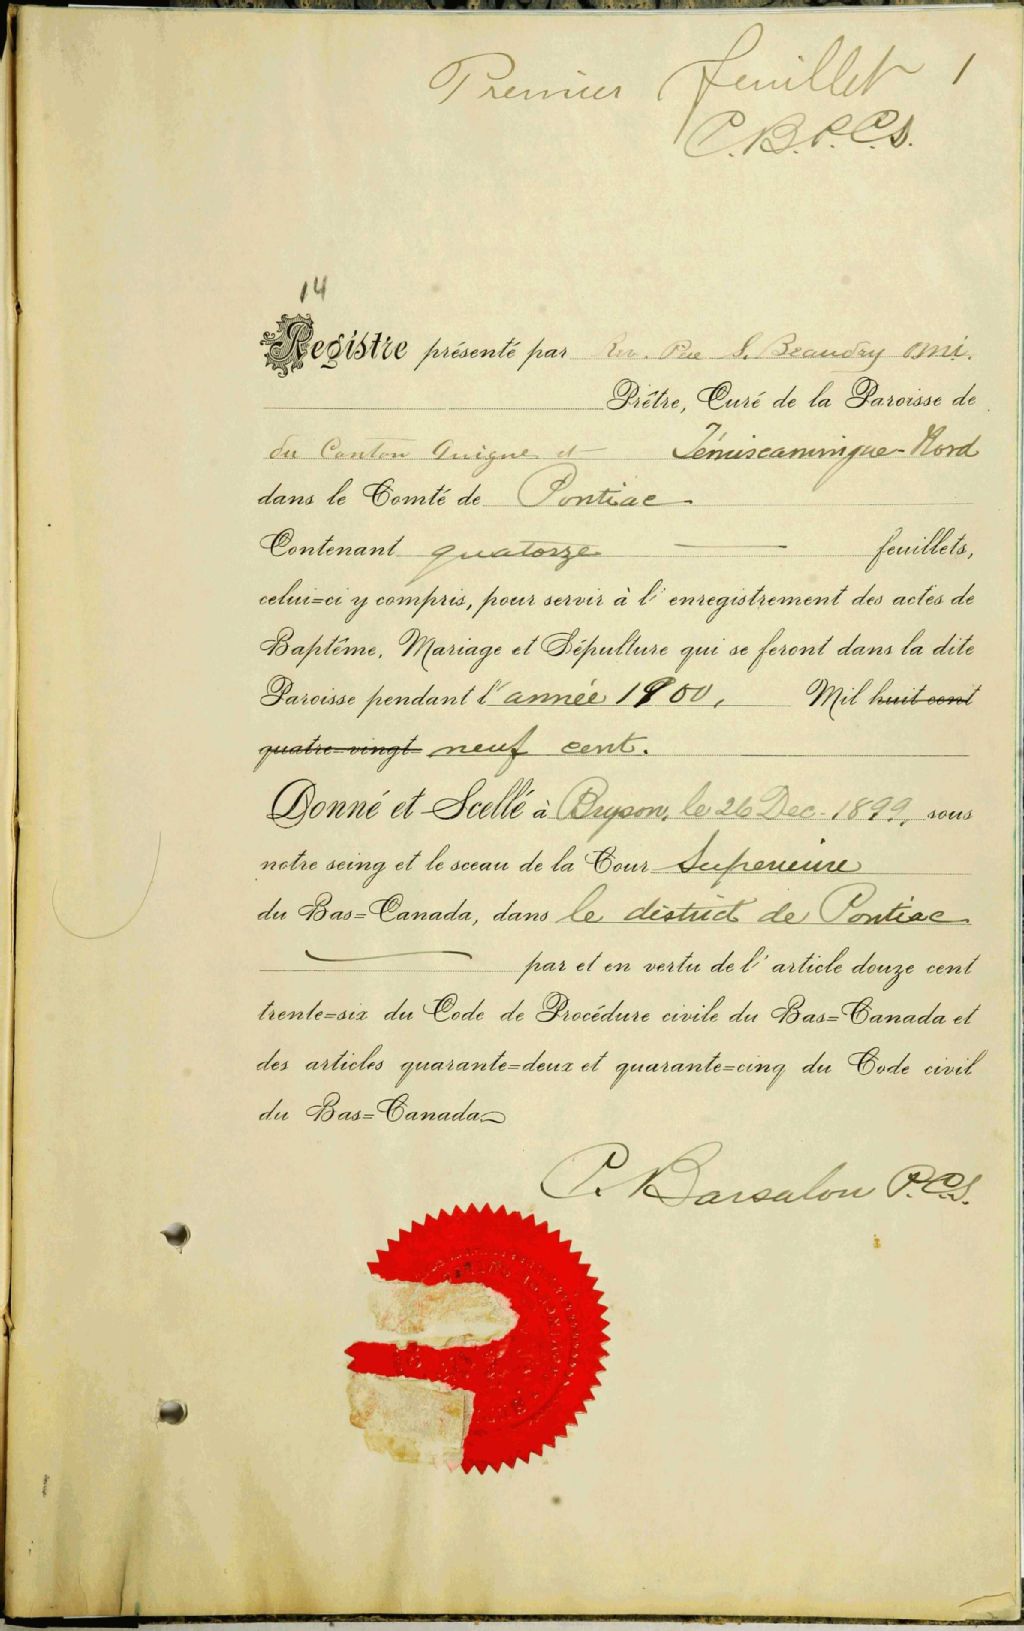 Premier feuillet 1
P.B.P.C.S.
14
Registre présenté par Rev. Père S. Beaudry OMI.
Prêtre, Curé de la Paroisse de
du Canton Guigue et Témiscamingue-Nord
dans le Comté de Pontiac
Contenant quatorze feuillets,
celui=ci y compris, pour servir à l' enregistrement des actes de
Baptême, Mariage et Sépulture qui se feront dans la dite
Paroisse pendant l'année 1900, Mil huit cent
quatre=vingt neuf cent.
Donné et Scellé à Bryson, le 26 Dec. 1899, sous
notre seing et le sceau de la Cour Superieure
du Bas=Canada, dans le district de Pontiac
par et en vertu de l' article douze cent
trente=six du Code de Procédure civile du Bas=Canada et
des articles quarante=deux et quarante=cinq du Code civil
du Bas=Canada
P. Barsalou P.C.S.